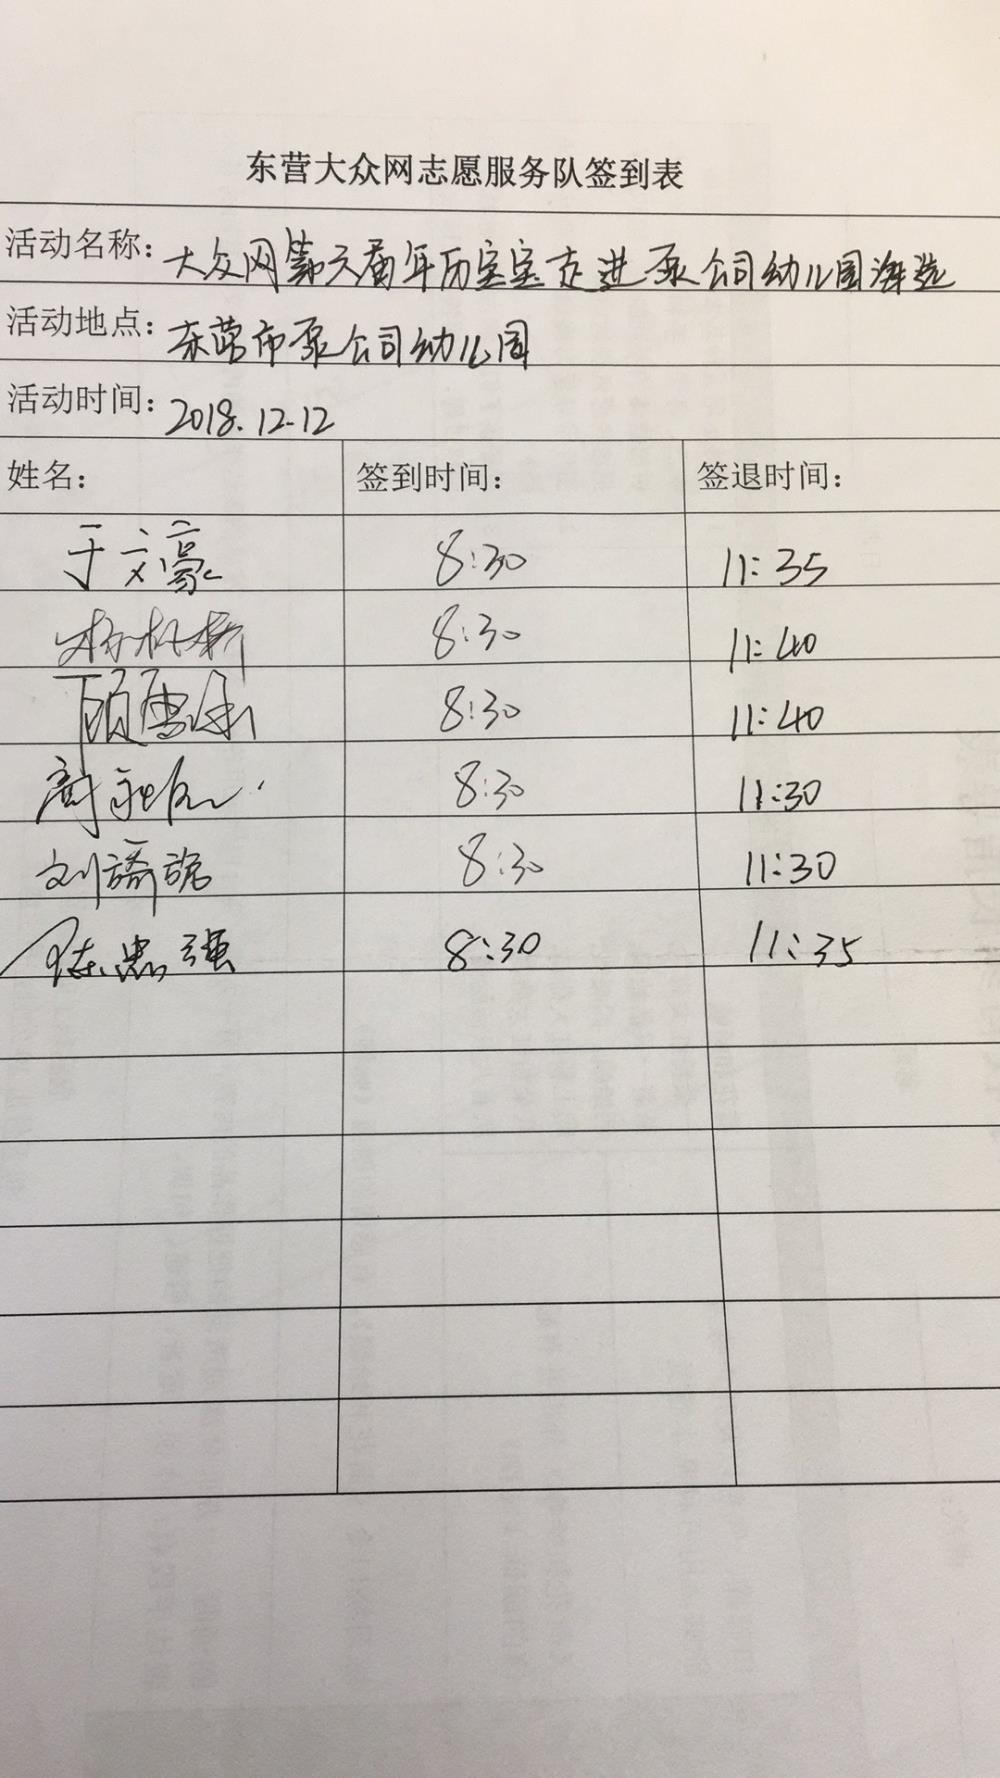 东营大众网志愿服务队签到表
活动名称：大众网第六届年历宝宝走进泵公司幼儿园海选
活动地点：东营市泵公司幼儿园
活动时间：2018.12.12
姓名： 签到时间： 签退时间：
于文豪 8:30 11:35
8:30 11:40
顾 8:30 11:40
8:30 11:30
刘 8:30 11:30
陈忠强 8:30 11:35